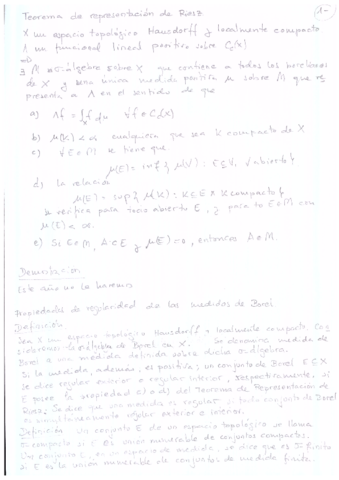 1-
Teorema de representación de Riesz
X un espacio topológico Hausdorff y localmente compacto
Λ un funcional lineal positivo sobre Cc(X)
⇒
∃ M σ-álgebra sobre X que contiene a todos los borelianos
de X y una única medida positiva μ sobre M que re
presenta a Λ en el sentido de que
a) Λf = ∫ f dμ ∀f ∈ Cc(X)
b) μ(K) < ∞ cualquiera que sea K compacto de X
c) ∀E ∈ M se tiene que
μ(E) = inf { μ(V) : E ⊆ V, V abierto }
d) la relación
μ(E) = sup { μ(K) : K ⊆ E y K compacto }
se verifica para todo abierto E, y para to E ∈ M con
μ(E) < ∞.
e) Si E ∈ M, A ⊂ E y μ(E) = 0, entonces A ∈ M
Demostración
Este año no la haremos
Propiedades de regularidad de las medidas de Borel
Definición
Sea X un espacio topológico Hausdorff y localmente compacto
de Borel en X. Se denomina medida de
Borel a una medida definida sobre dicha σ-álgebra.
Si la medida, además, es positiva, un conjunto de Borel E ⊆ X
se dice regular exterior o regular interior, respectivamente, si
E posee la propiedad c) o d) del Teorema de Representación de
Riesz. Se dice que una medida es regular si todo conjunto de Borel
es simultáneamente regular exterior e interior.
Definición Un conjunto E de un espacio topológico se llama
σ-compacto si E es unión numerable de conjuntos compactos.
Un conjunto E, en un espacio de medida, se dice que es σ-finito
si E es la unión numerable de conjuntos de medida finita.